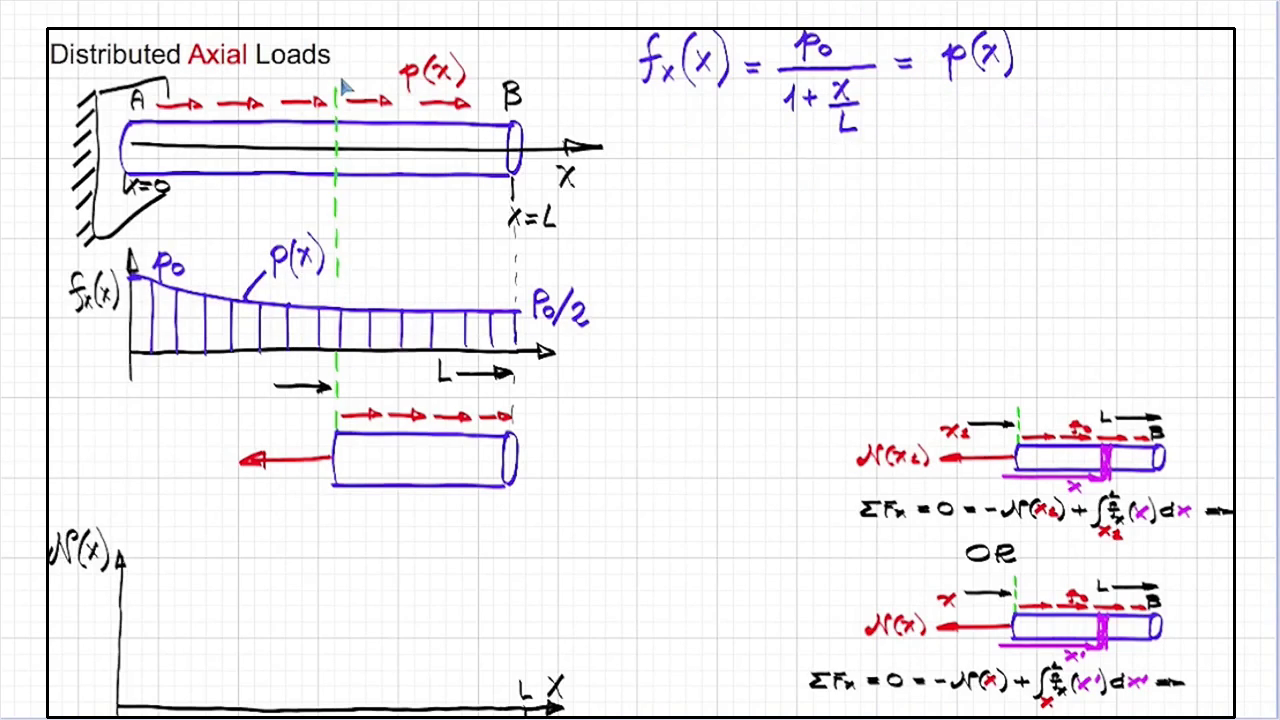 Distributed Axial Loads
fx(x) = p0 / (1 + x/L) = p(x)
p(x)
A
B
x=0
X
x=L
fx(x)
p0
p(x)
P0/2
L
L
x1
B
N(x1)
x
ΣFx = 0 = -N(x1) + ∫ fx(x)dx
x1
OR
L
x
B
N(x)
x'
ΣFx = 0 = -N(x) + ∫ fx(x')dx'
x
N(x)
L X